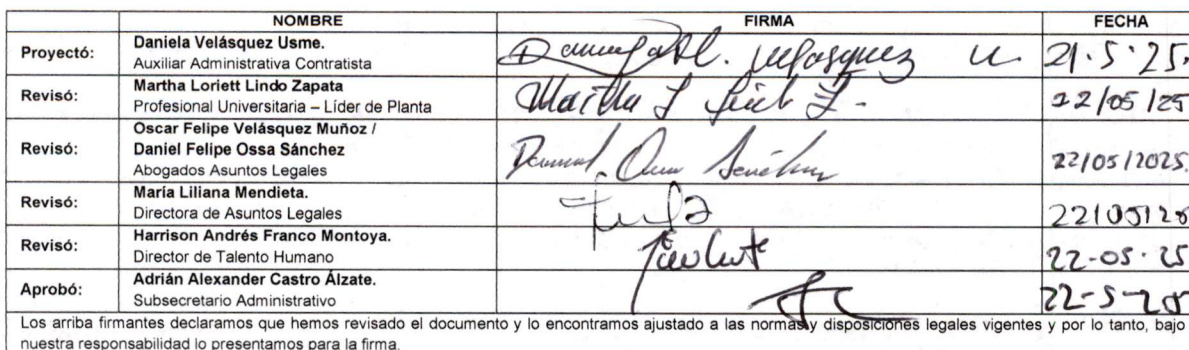 NOMBRE FIRMA FECHA
Proyectó: Daniela Velásquez Usme.
Auxiliar Administrativa Contratista
Daniela Velasquez U 21.5.25.
Revisó: Martha Loriett Lindo Zapata
Profesional Universitaria – Líder de Planta
Martha L 22/05/25
Revisó: Oscar Felipe Velásquez Muñoz /
Daniel Felipe Ossa Sánchez
Abogados Asuntos Legales
Daniel Ossa Sánchez 22/05/2025.
Revisó: María Liliana Mendieta.
Directora de Asuntos Legales
22/05/25
Revisó: Harrison Andrés Franco Montoya.
Director de Talento Humano
22-05-25
Aprobó: Adrián Alexander Castro Álzate.
Subsecretario Administrativo
22-5-25
Los arriba firmantes declaramos que hemos revisado el documento y lo encontramos ajustado a las normas y disposiciones legales vigentes y por lo tanto, bajo
nuestra responsabilidad lo presentamos para la firma.